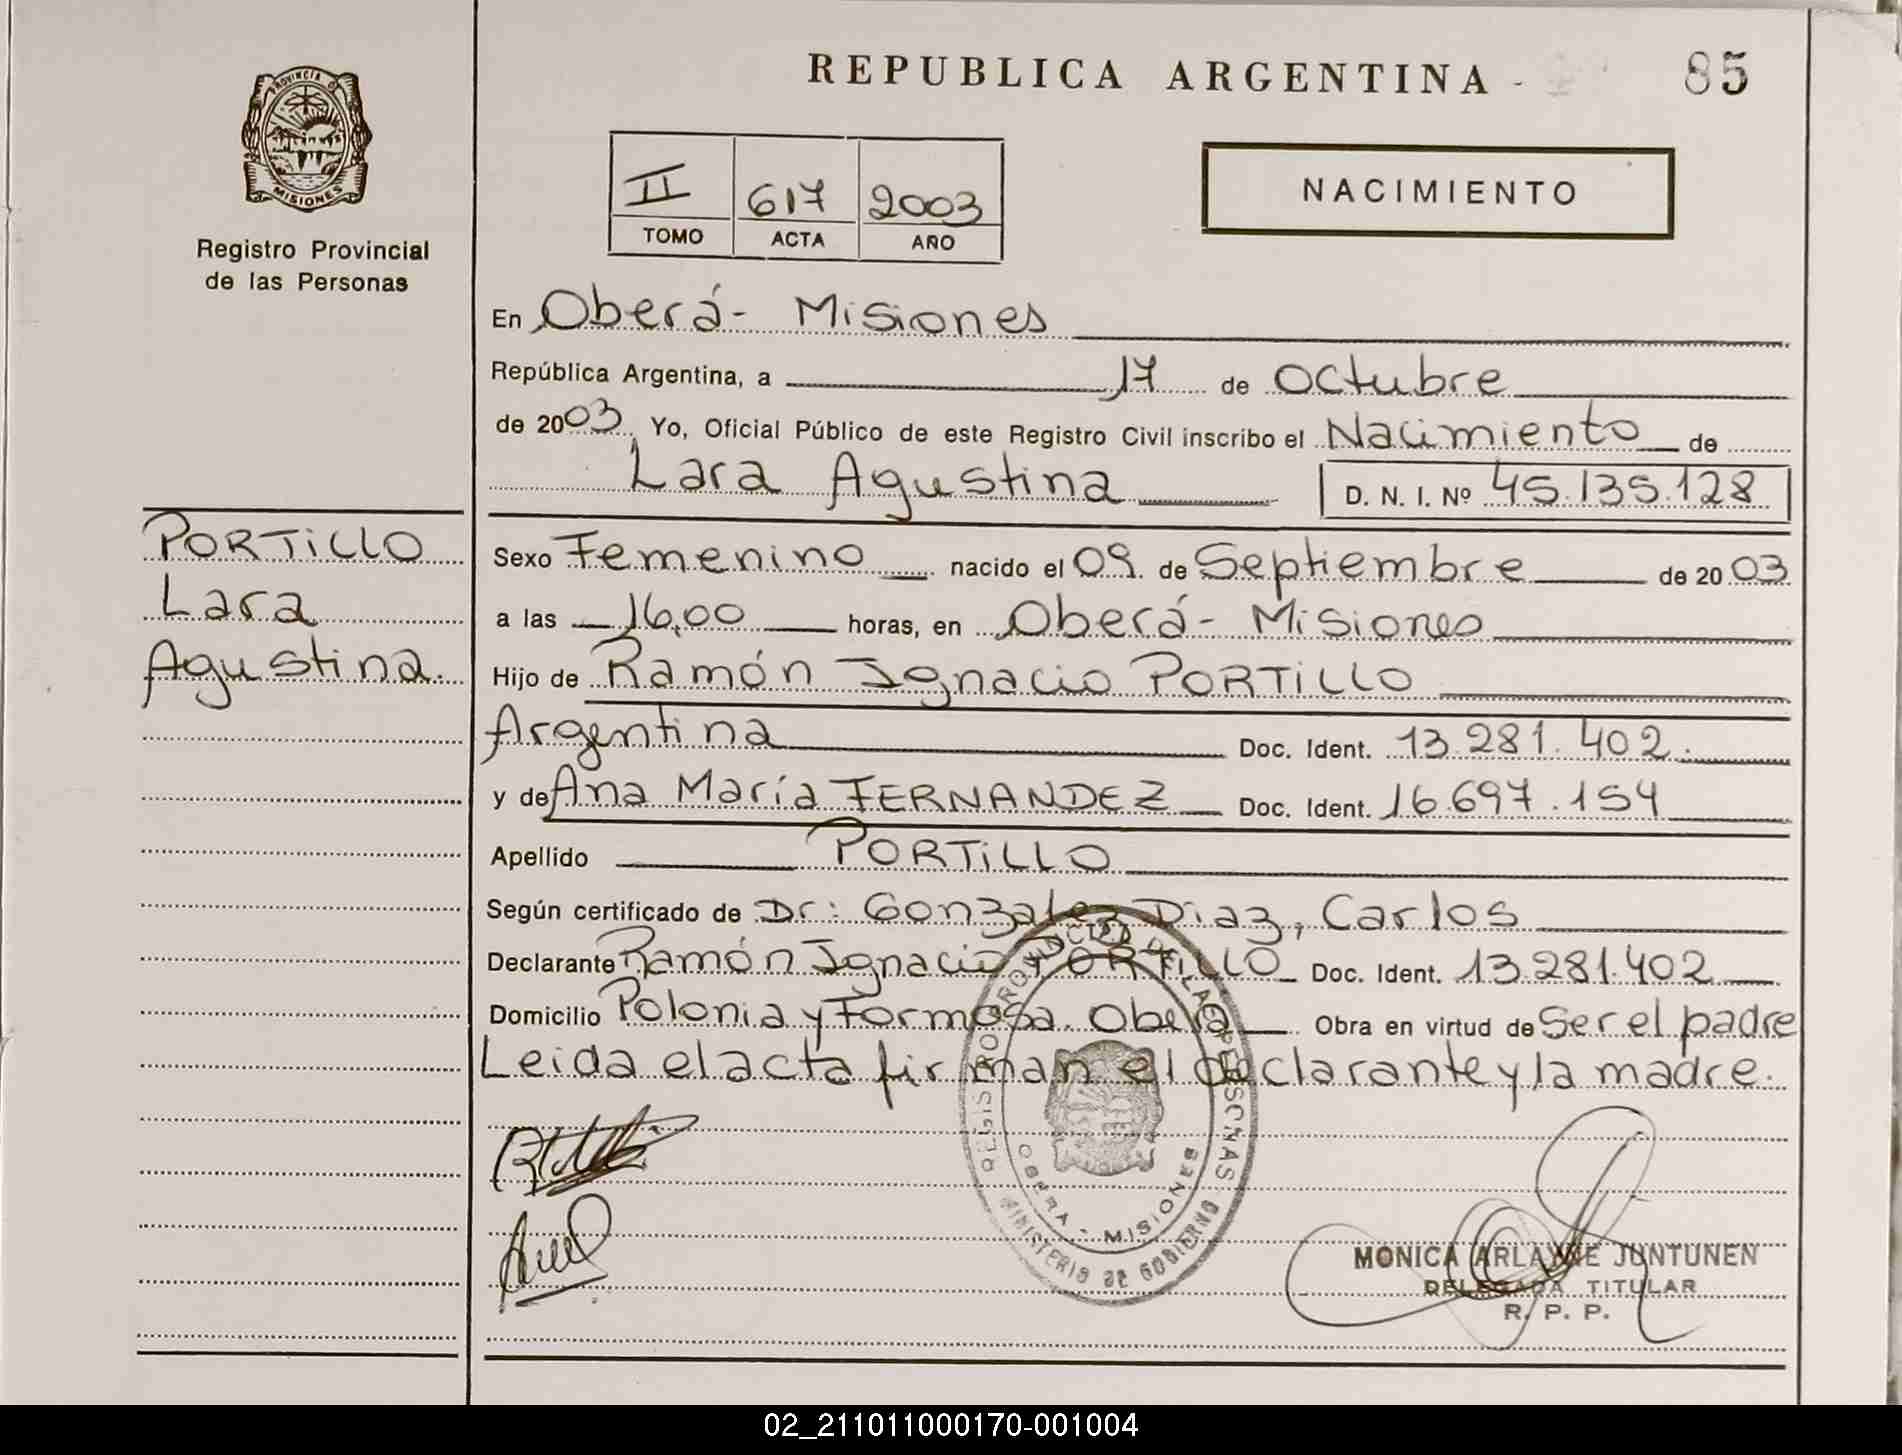 REPUBLICA ARGENTINA -
85
PROVINCIA DE
MISIONES
Registro Provincial
de las Personas
II 617 2003
TOMO ACTA AÑO
NACIMIENTO
En Oberá- Misiones
República Argentina, a 17 de Octubre
de 2003, Yo, Oficial Público de este Registro Civil inscribo el Nacimiento de
Lara Agustina D. N. I. Nº 45.135.128
PORTiLLO
Lara
Agustina.
Sexo Femenino nacido el 09 de Septiembre de 2003
a las 16,00 horas, en Oberá- Misiones
Hijo de Ramón Ignacio PORTiLLO
Argentina Doc. Ident. 13.281.402.
y de Ana María FERNANDEZ Doc. Ident. 16.697.154
Apellido PORTiLLO
Según certificado de Dr: Gonzalez Diaz, Carlos
Declarante Ramón Ignacio PORTILLO Doc. Ident. 13.281.402
Domicilio Polonia y Formosa. Oberá Obra en virtud de Ser el padre
Leida el acta firman el declarante y la madre.
REGISTRO PROVINCIAL DE LAS PERSONAS
MINISTERIO DE GOBIERNO
OBERA - MISIONES
MONICA ARLAYNE JUNTUNEN
DELEGADA TITULAR
R. P. P.
02_211011000170-001004